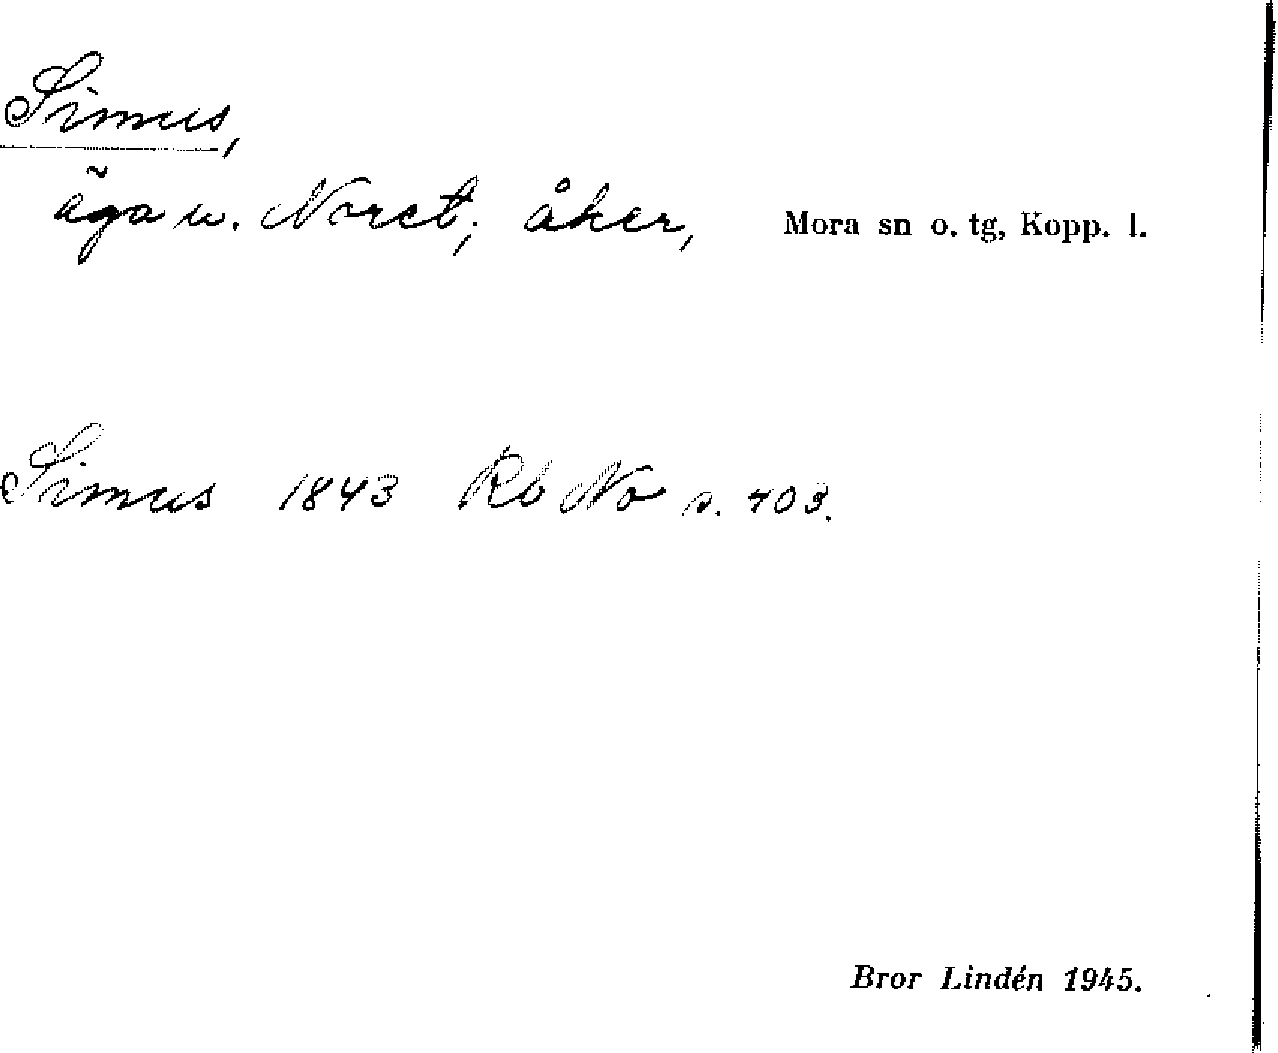 Simus,
äga u. Noret; åker, Mora sn o. tg, Kopp. l.
Simus 1843 Rb No s. 703.
Bror Lindén 1945.